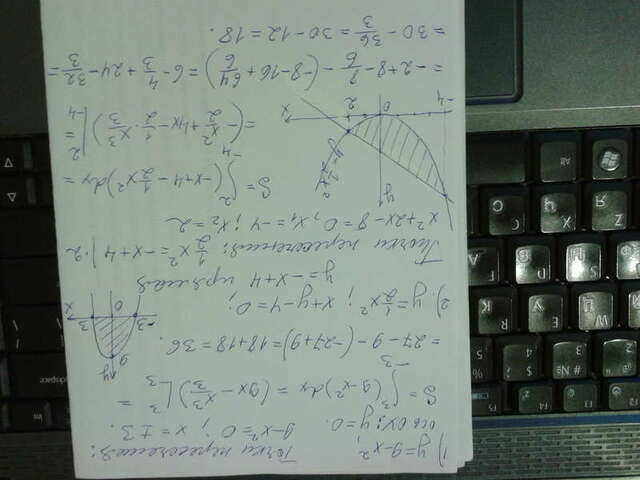 1) y=9-x², Точки пересечения:
ось OX; y=0. 9-x²=0; x=±3.
S = ∫₋₃³ (9-x²)dx = (9x - x³/3)|₋₃³ =
= 27-9-(-27+9) = 18+18 = 36.
9 y
-3 0 3 x
2) y=1/2 x²; x+y-4=0;
y=-x+4 прямая
Точки пересечения: 1/2 x² = -x+4 |·2
x²+2x-8=0, x₁=-4; x₂=2
S = ∫₋₄² (-x+4-1/2 x²)dx =
= (-x²/2+4x-1/2·x³/3)|₋₄² =
= -2+8-8/6-(-8-16+64/6) = 6-4/3+24-32/3 =
= 30-36/3 = 30-12 = 18.
y
y=1/2 x²
-4 0 2 x
Alt